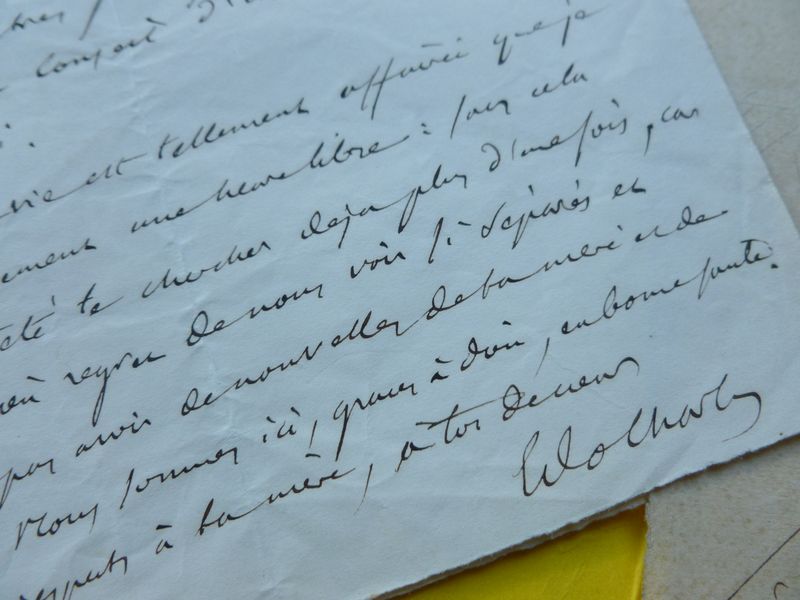 confort d'
vie est tellement affairée que je
ement une heure libre : pour cela
été te chercher déjà plus d'une fois, car
regret de nous voir si séparés et
pas avoir de nouvelles de ta mère et de
Nous sommes ici, graces à dieu, en bonne santé.
respects à ta mère, à toi de cœur